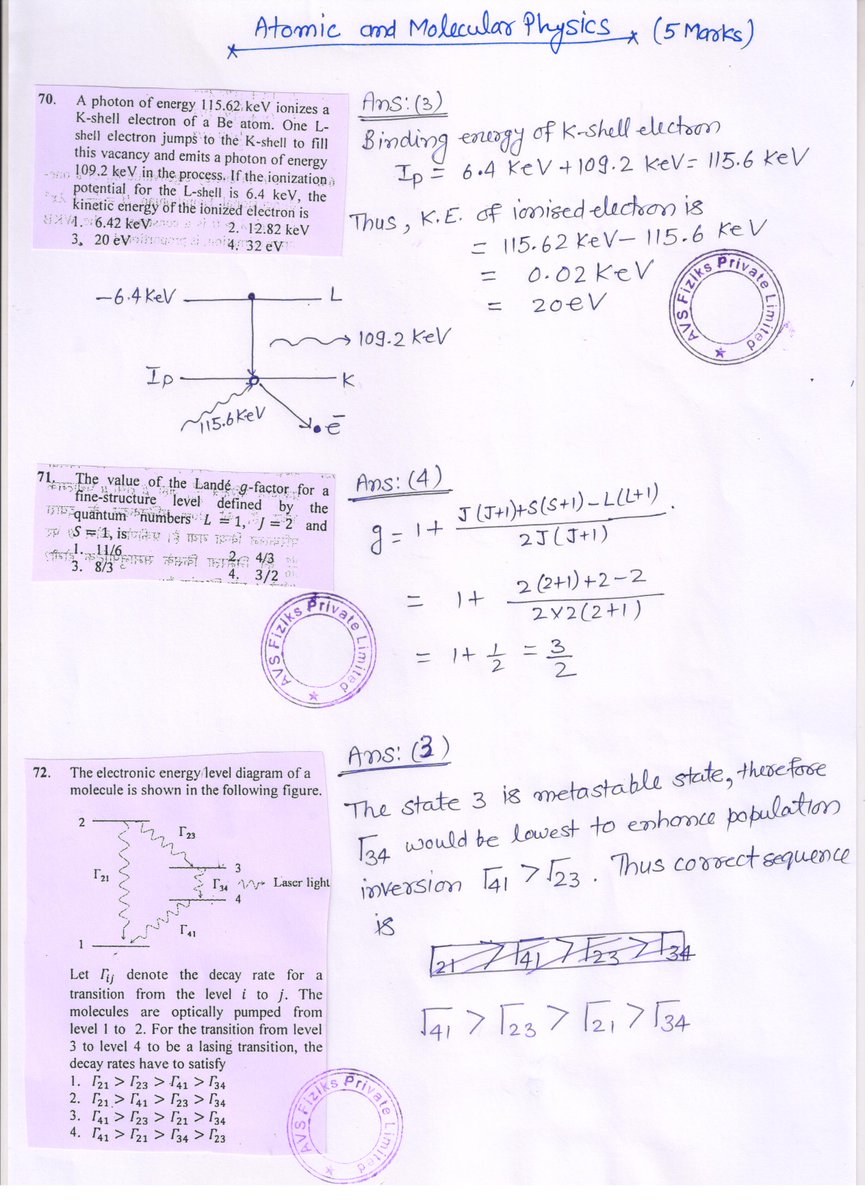 Atomic and Molecular Physics (5 Marks)
70. A photon of energy 115.62 keV ionizes a
K-shell electron of a Be atom. One L-
shell electron jumps to the K-shell to fill
this vacancy and emits a photon of energy
109.2 keV in the process. If the ionization
potential for the L-shell is 6.4 keV, the
kinetic energy of the ionized electron is
1. 6.42 keV 2. 12.82 keV
3. 20 eV 4. 32 eV
Ans: (3)
Binding energy of K-shell electron
Ip = 6.4 KeV + 109.2 KeV = 115.6 KeV
Thus, K.E. of ionised electron is
= 115.62 KeV - 115.6 KeV
= 0.02 KeV
= 20eV
-6.4 KeV L
109.2 KeV
Ip K
115.6 KeV e̅
AVS Fiziks Private Limited
71. The value of the Landé g-factor for a
fine-structure level defined by the
quantum numbers L = 1, J = 2 and
S = 1, is
1. 11/6 2. 4/3
3. 8/3 4. 3/2
Ans: (4)
g = 1 + J(J+1)+S(S+1)-L(L+1) / 2J(J+1).
= 1 + 2(2+1)+2-2 / 2×2(2+1)
= 1 + 1/2 = 3/2
AVS Fiziks Private Limited
72. The electronic energy level diagram of a
molecule is shown in the following figure.
2
Γ23
3
Γ21 Γ34 Laser light
4
Γ41
1
Let Γij denote the decay rate for a
transition from the level i to j. The
molecules are optically pumped from
level 1 to 2. For the transition from level
3 to level 4 to be a lasing transition, the
decay rates have to satisfy
1. Γ21 > Γ23 > Γ41 > Γ34
2. Γ21 > Γ41 > Γ23 > Γ34
3. Γ41 > Γ23 > Γ21 > Γ34
4. Γ41 > Γ21 > Γ34 > Γ23
Ans: (3)
The state 3 is metastable state, therefore
Γ34 would be lowest to enhance population
inversion Γ41 > Γ23. Thus correct sequence
is
Γ21 > Γ41 > Γ23 > Γ34
Γ41 > Γ23 > Γ21 > Γ34
AVS Fiziks Private Limited